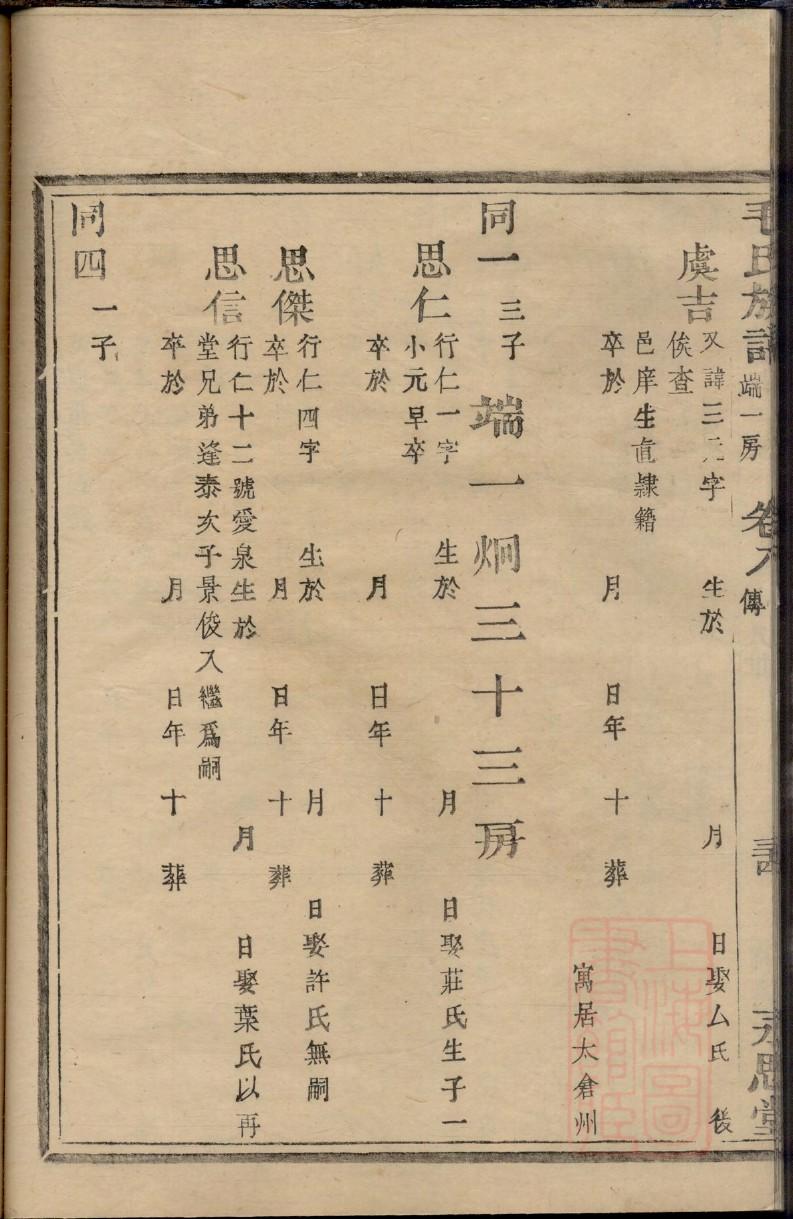 毛氏族譜 端一房 卷八 傳 永思堂
虞吉 又諱三元字 生於 月 日娶厶氏 後
俟查
邑庠生直隸籍
卒於 月 日年 十 葬
寓居太倉州
端一炯三十三房
同一 三子
思仁 行仁一字 生於 月 日娶莊氏生子一
小元早卒
卒於 月 日年 十 葬
思傑 行仁四字 生於 月 日娶許氏無嗣
卒於 月 日年 十 葬
思信 行仁十二號愛泉生於 月 日娶葉氏以再
堂兄弟逢泰次子景俊入繼爲嗣
卒於 月 日年 十 葬
同四 一子
上海圖書館臧